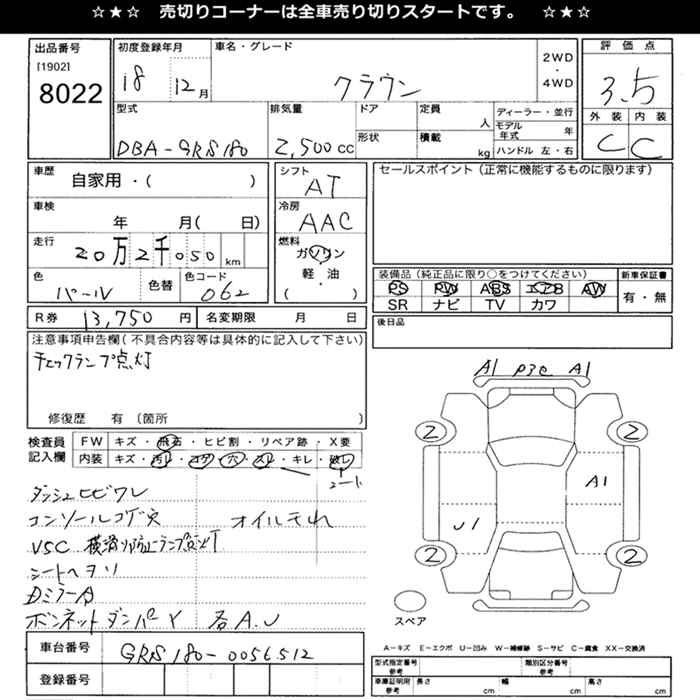 ☆★☆ 売切りコーナーは全車売り切りスタートです。 ☆★☆
出品番号 初度登録年月 車名・グレード 2WD・4WD 評価点
[1902] 8022 18 12月 クラウン 3.5
型式 排気量 ドア 定員 人 ディーラー・並行 外装 内装
モデル年式 年
DBA-GRS180 2,500cc 形状 積載 kg ハンドル 左・右 C C
車歴 自家用・( ) シフト AT セールスポイント(正常に機能するものに限ります)
車検 年 月( 日) 冷房 AAC
走行 20万2千050 km 燃料 ガソリン・軽・油 ( )
色 パール 色替 色コード 062
装備品(純正品に限り○をつけてください) 新車保証書
PS PW ABS エアB AW 有・無
SR ナビ TV カワ
R券 13,750 円 名変期限 月 日 後日品
注意事項申告欄(不具合内容等は具体的に記入して下さい)
チェックランプ点灯
修復歴 有 〔箇所
検査員記入欄 FW キズ・飛石・ヒビ割・リペア跡・X要
内装 キズ・汚れ・コゲ・穴・スレ・キレ・破レ
シート
ダッシュヒビワレ
コンソールコゲ穴 オイルモれ
VSC 横滑り防止ランプ点灯
シートヘタリ
DミラーA
ボンネットダンパーY 各A.U
A1 P3C A1
2 2
A1
U1
2 2
スペア
A-キズ E-エクボ U-凹み W-補修跡 S-サビ C-腐食 XX-交換済
車台番号 GRS180-0056512
登録番号
型式指定番号 参考 類別区分番号 参考
車庫証明用 参考 長さ cm 幅 cm 高さ cm